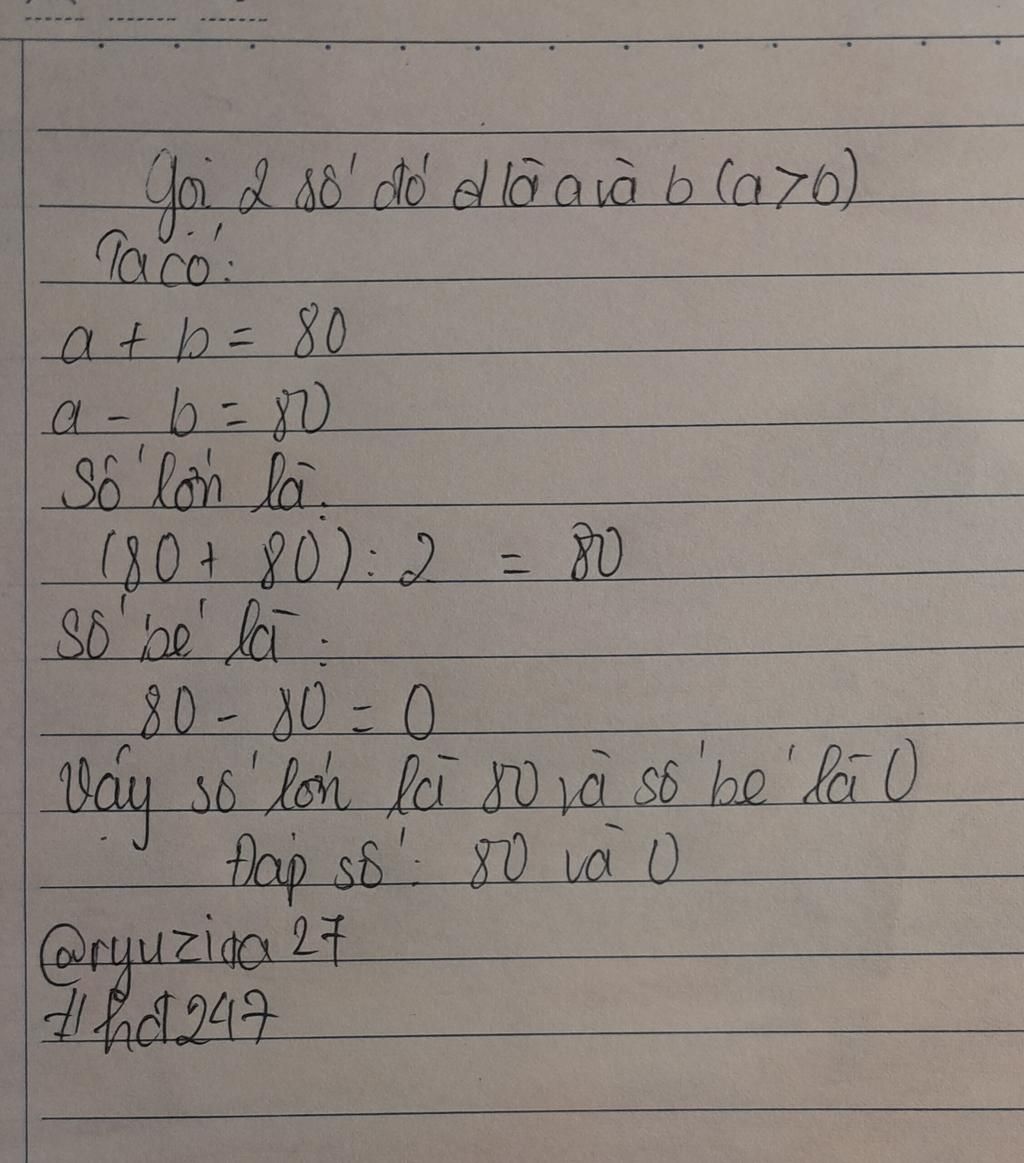 Gọi 2 số đó là a và b (a>b)
Ta có:
a + b = 80
a - b = 80
Số lớn là:
(80 + 80) : 2 = 80
Số bé là:
80 - 80 = 0
Vậy số lớn là 80 và số bé là 0
Đáp số: 80 và 0
@ryuziga27
#hđ247